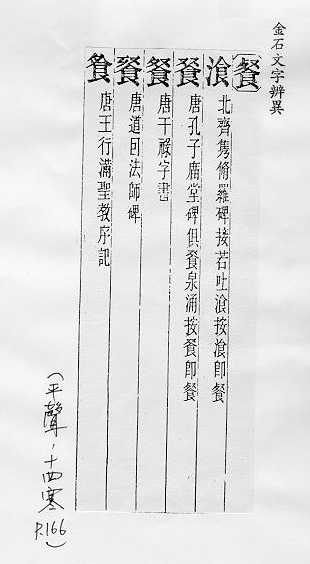 金石文字辨異
〔餐〕
湌 北齊雋脩羅碑接若吐湌按湌即餐
唐孔子廟堂碑俱飱泉涌按飱即餐
唐干祿字書
唐道因法師碑
唐王行滿聖教序記
(平聲,十四寒 P.166)